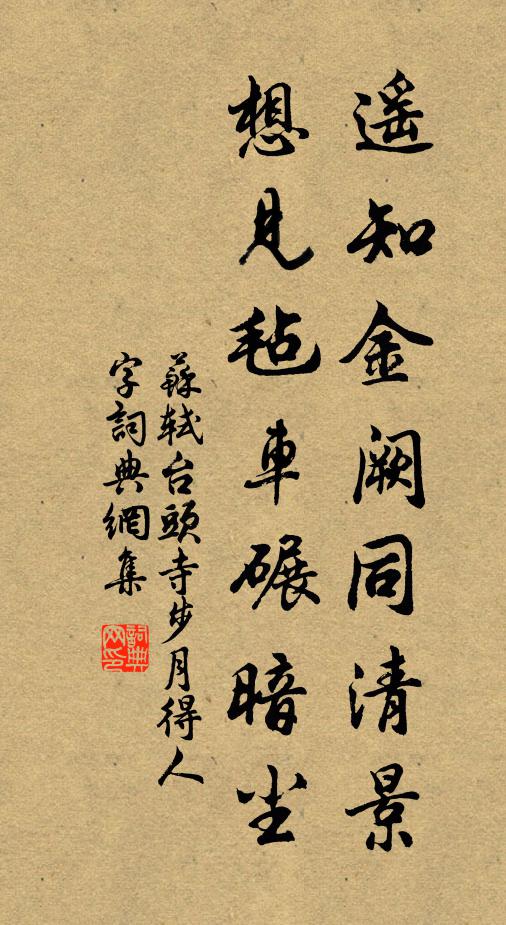 遥知金阙同清景
想見毡車碾暗尘
蘇轼台頭寺步月得人
字詞典網集
詞典
网印